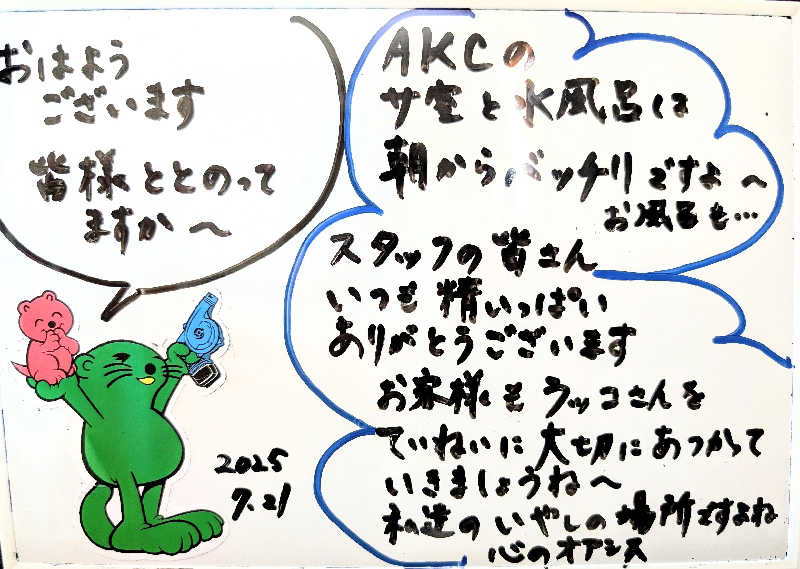 おはよう
ございます
皆様ととのって
ますかへ
AKCの
サ室と水風呂は
朝からバッチリですよへ
お風呂も…
スタッフの皆さん
いつも精いっぱい
ありがとうございます
お客様もラッコさんを
ていねいに大切にあつかって
いきましょうねへ
私達のいやしの場所ですよね
心のオアシス
2025
7.21